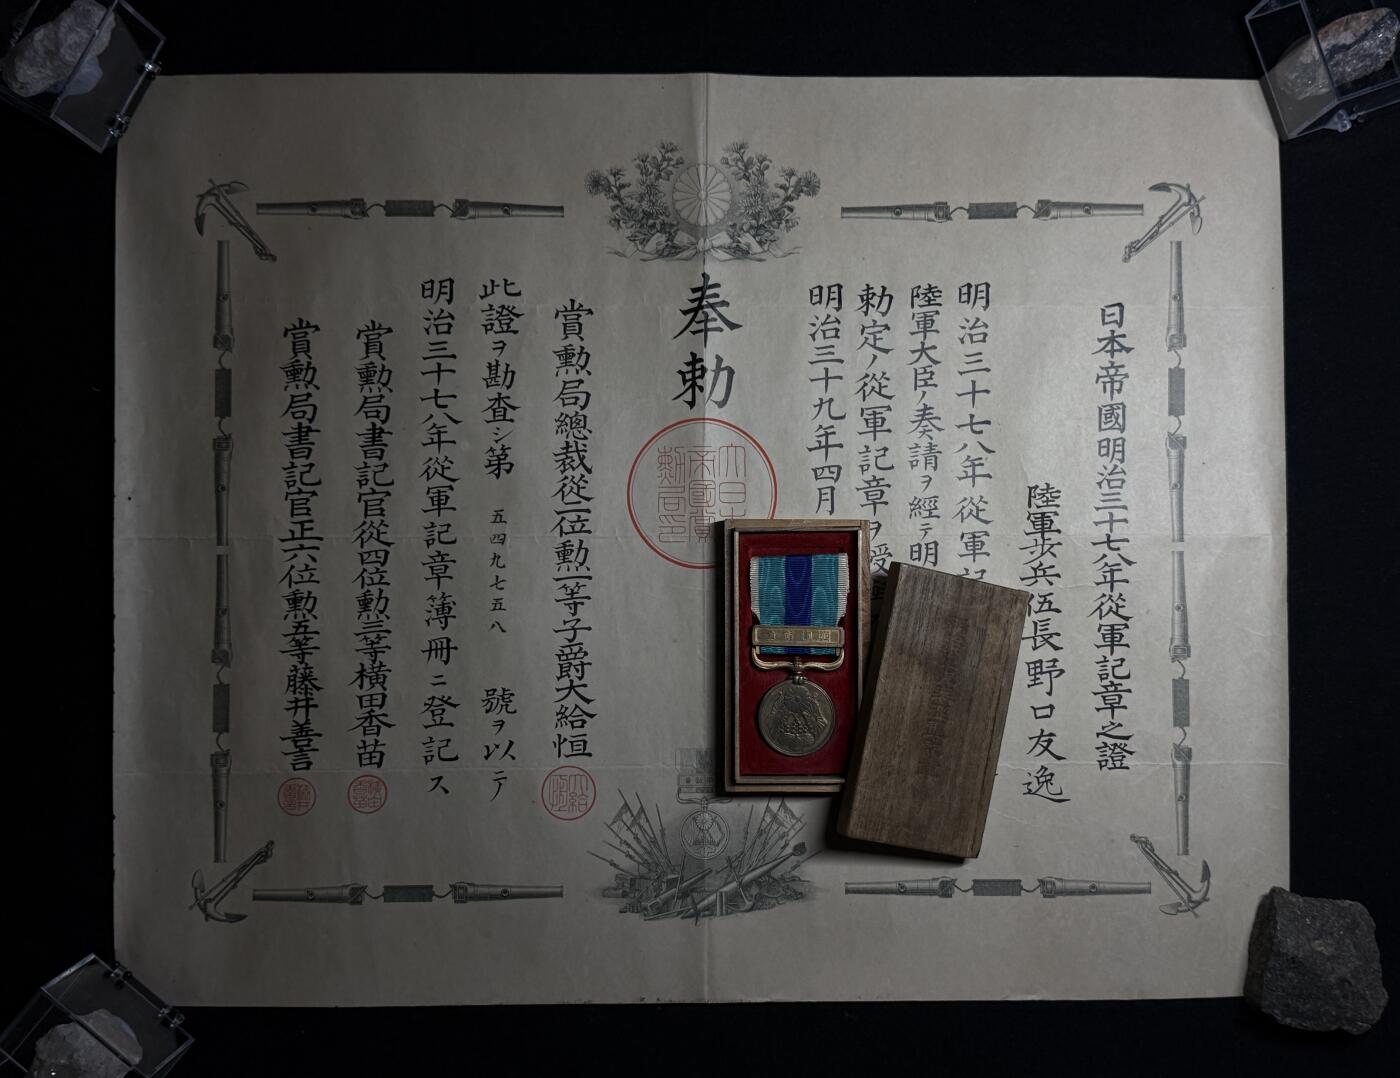 日本帝國明治三十七八年從軍記章之證
陸軍歩兵伍長野口友逸
明治三十七八年從軍記
陸軍大臣ノ奏請ヲ經テ明
勅定ノ從軍記章ヲ授
明治三十九年四月
奉勅
大日本帝國賞勲局印
賞勲局總裁從二位勲一等子爵大給恒
此證ヲ勘査シ第五四九七五八號ヲ以テ
明治三十七八年從軍記章簿冊ニ登記ス
賞勲局書記官從四位勲三等横田香苗
賞勲局書記官正六位勲五等藤井善言